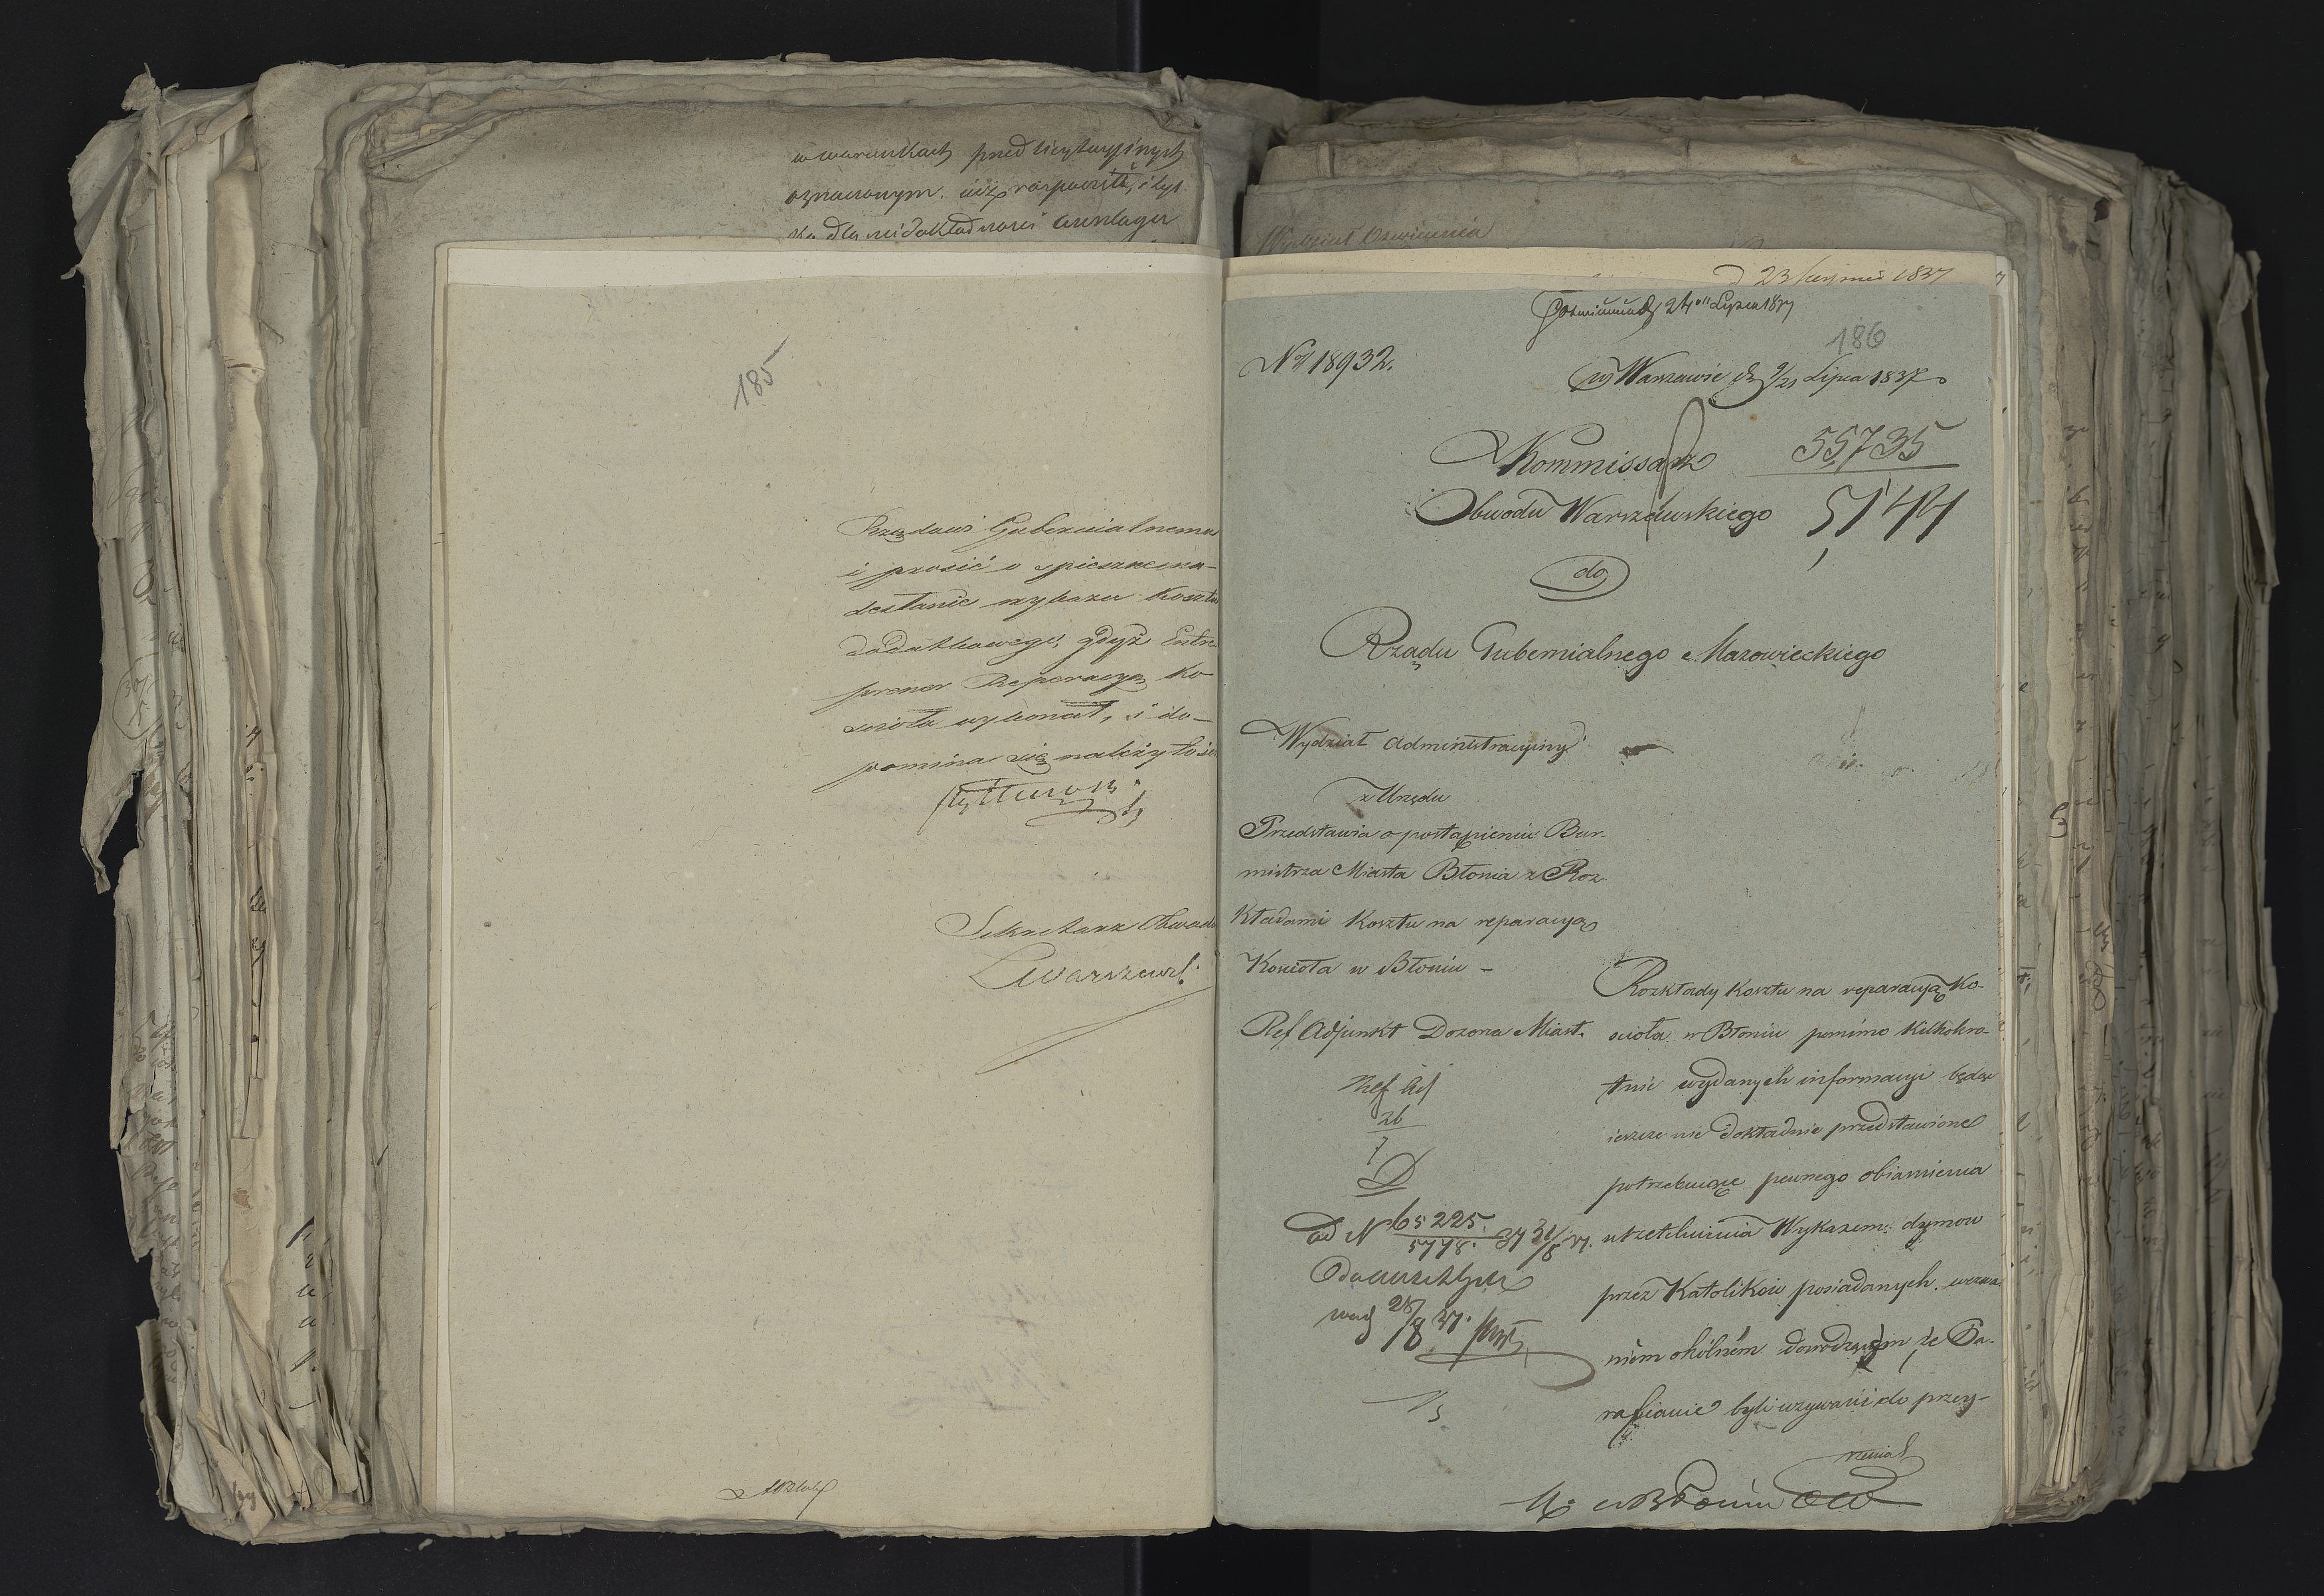 w warunkach przedlicytacyjnych
oznaczonym, iuż rozpoczęte, i tyl
ko dla niedokładności
185
Rządowi Gubernialnemu
i prosić o spieszne na-
desłanie wykazu Kosztu
dodatkowego, gdyż Entre
prener Reperacyą Ko-
scioła wykonał, i do-
pomina się należytości
Sekretarz Obwodu
Wydział Oswiecenia
d 23 1837
24 Lipca 1837
186
No 18932.
w Warszawie d 9/21 Lipca 1837
Kommissarz
55735
Obwodu Warszawskiego
5144
do
Rządu Gubernialnego Mazowieckiego
Wydział Administracyiny
z Urzędu
Przedstawia o postąpieniu Bur-
mistrza Miasta Błonia z Roz-
kładami Kosztu na reparacyą
Kościoła w Błoniu -
Ref Adjunkt Dozorca Miast.
Ref Adj
26
7
Ad N 65225. 37 31/8 37.
5778.
28/8 37.
Rozkłady Kosztu na reparacyą Ko-
scioła w Błoniu pomimo Kilkokro-
tnie wydanych informacyi będąc
ieszcze nie dokładnie przedstawione
potrzebuiące pewnego obiasnienia
Wykazem dymow
przez Katolikow posiadanych,
niem okólnem dowodzącym, że Pa-
rafianie byli wzywani do przy-
rzenia
w Błoniu